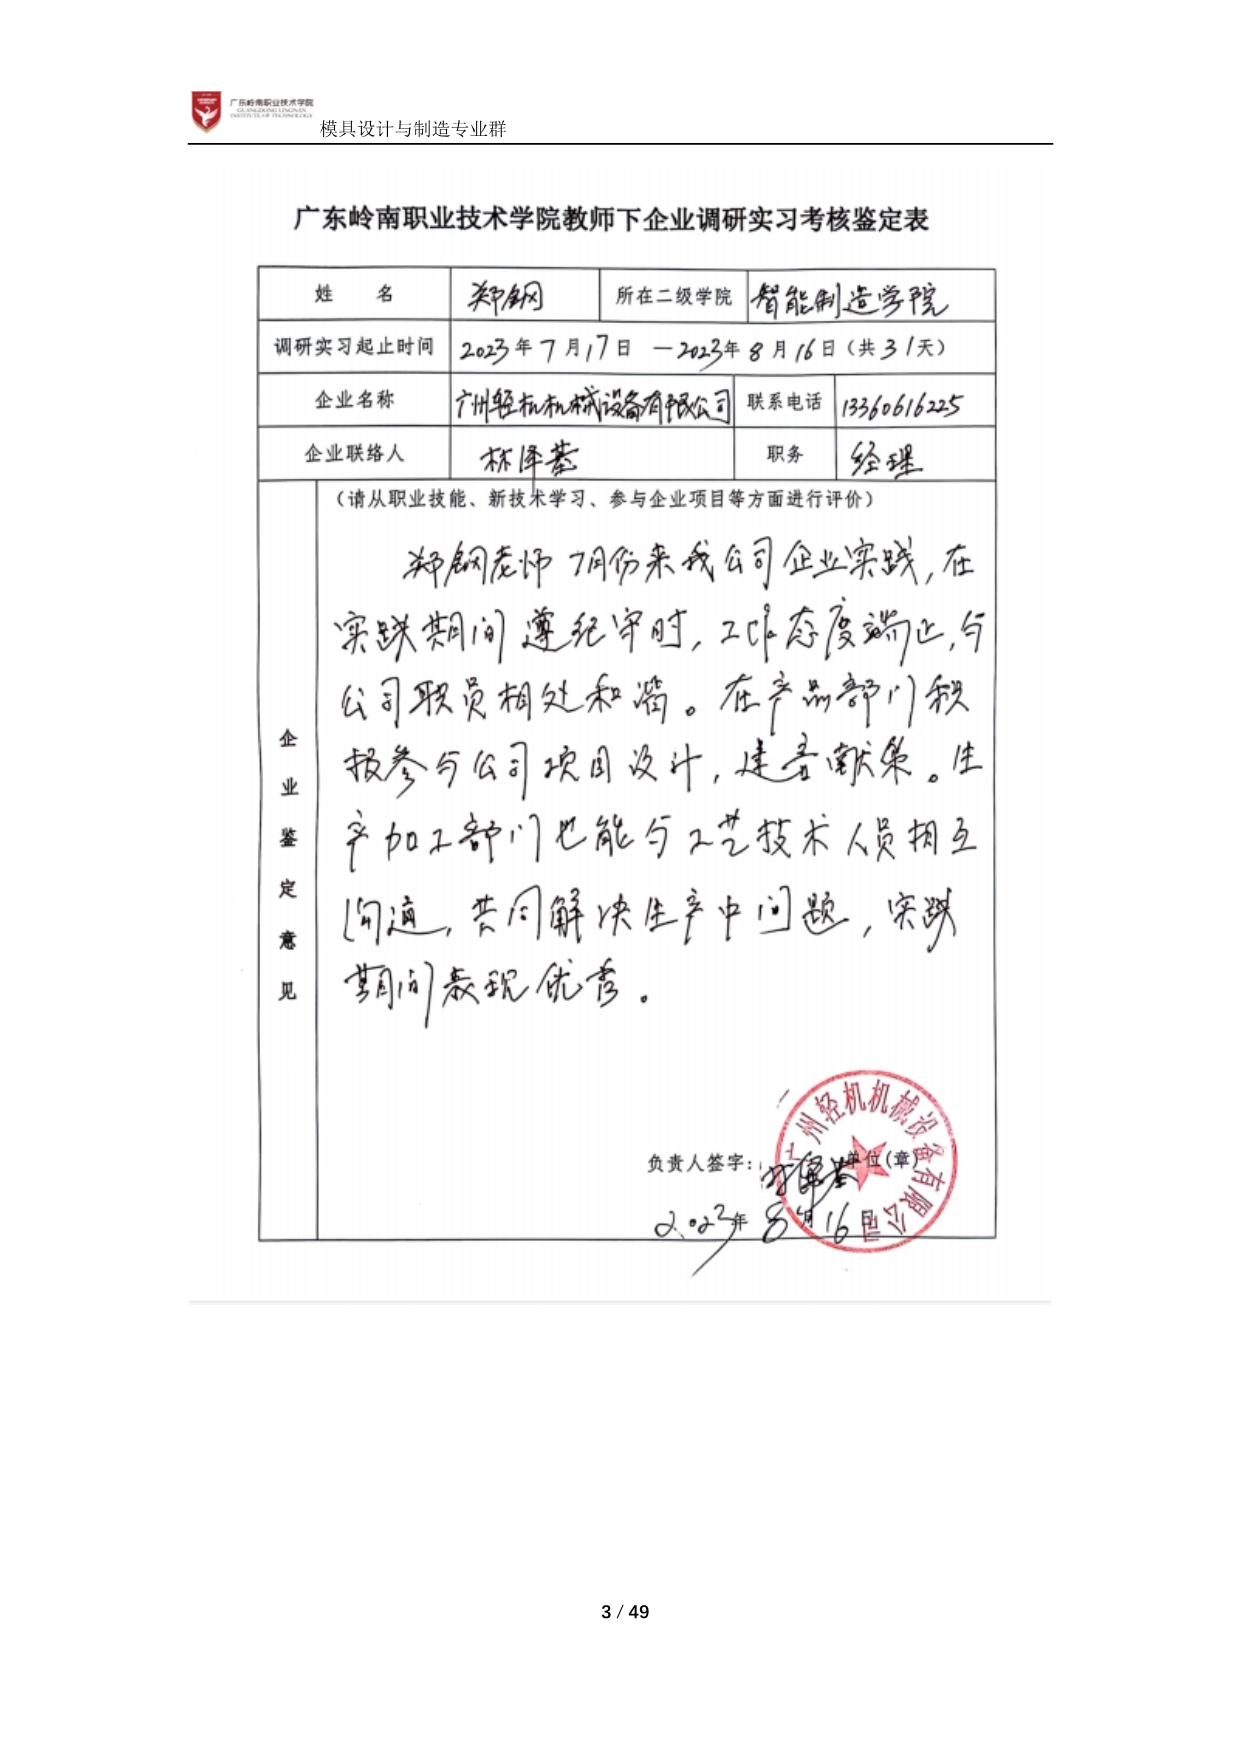 广东岭南职业技术学院
GUANGDONG LINGNAN
INSTITUTE OF TECHNOLOGY
模具设计与制造专业群
广东岭南职业技术学院教师下企业调研实习考核鉴定表
姓 名 郑钢 所在二级学院 智能制造学院
调研实习起止时间 2023年7月17日 —2023年8月16日（共31天）
企业名称 广州轻机机械设备有限公司 联系电话 13360616225
企业联络人 林泽基 职务 经理
企业鉴定意见
（请从职业技能、新技术学习、参与企业项目等方面进行评价）
郑钢老师7月份来我公司企业实践，在
实践期间遵纪守时，工作态度端正，与
公司职员相处和谐。在产品部门积
极参与公司项目设计，建言献策。生
产加工部门也能与工艺技术人员相互
沟通，共同解决生产中问题，实践
期间表现优秀。
负责人签字：林泽基 单位（章）
2023年8月16日
广州轻机机械设备有限公司
3 / 49